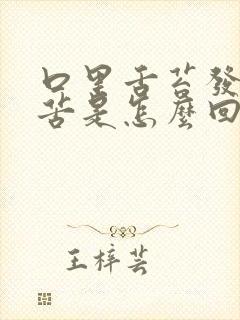 口里舌苔發
苦是怎麽回
王梓芸